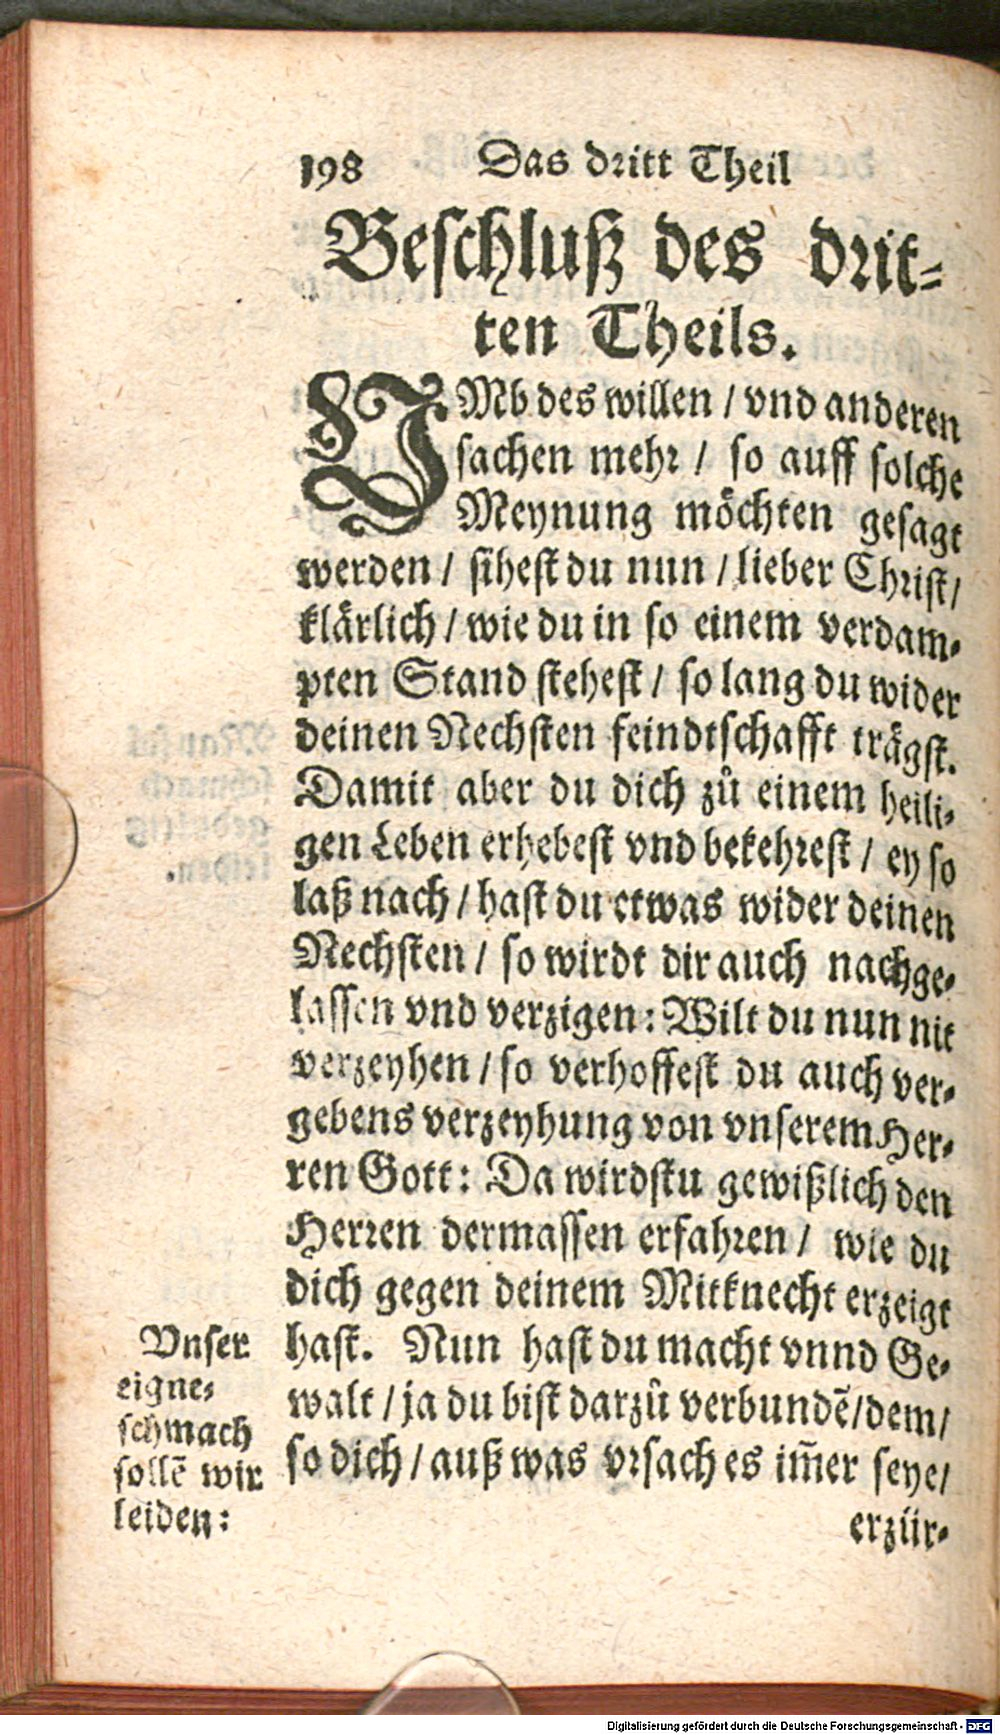 198 Das dritt Theil
Beschluß des drit-
ten Theils.
VMb des willen / vnd anderen
sachen mehr / so auff solche
Meynung möchten gesagt
werden / sihest du nun / lieber Christ /
klärlich / wie du in so einem verdam-
pten Stand stehest / so lang du wider
deinen Nechsten feindtschafft trägst.
Damit aber du dich zů einem heili-
gen Leben erhebest vnd bekehrest / ey so
laß nach / hast du etwas wider deinen
Nechsten / so wirdt dir auch nachge-
lassen vnd verzigen: Wilt du nun nit
verzeyhen / so verhoffest du auch ver-
gebens verzeyhung von vnserem Her-
ren Gott: Da wirdstu gewißlich den
Herren dermassen erfahren / wie du
dich gegen deinem Mitknecht erzeigt
hast. Nun hast du macht vnnd Ge-
walt / ja du bist darzů verbundē / dem /
so dich / auß was vrsach es im̄er seye /
erzür-
Vnser
eigne-
schmach
sollē wir
leiden:
Digitalisierung gefördert durch die Deutsche Forschungsgemeinschaft - DFG